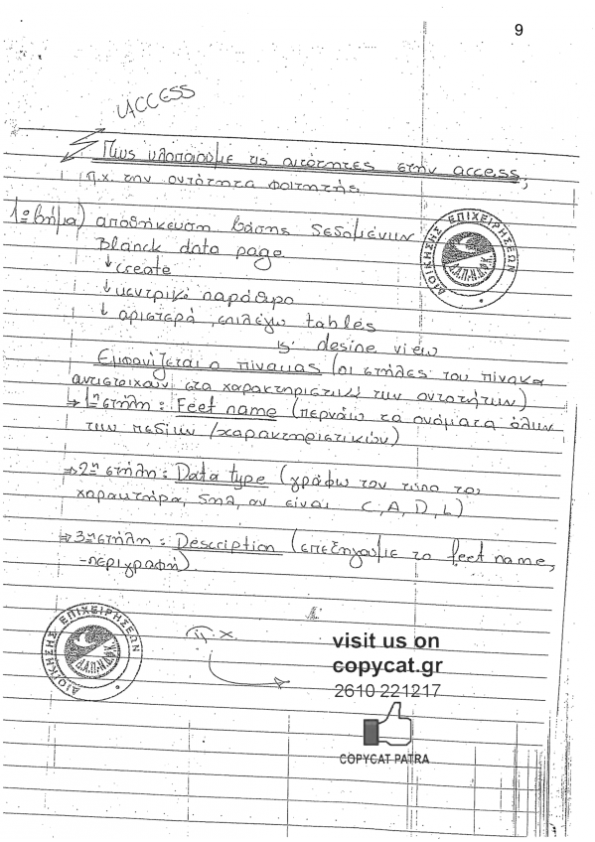 9
ACCESS
Πως υλοποιούμε τις οντότητες στην access;
π.χ. την οντότητα φοιτητής
1ο βήμα) αποθήκευση βάσης δεδομένων
Blanck data page
↓ create
↓ κεντρικό παράθυρο
↓ αριστερά επιλέγω tables
desine view
Εμφανίζεται ο πίνακας (οι στήλες του πίνακα
αντιστοιχούν στα χαρακτηριστικά των οντοτήτων)
→ 1η στήλη: Feet name (περνάω τα ονόματα όλων
των πεδίων /χαρακτηριστικών)
→ 2η στήλη: Data type (γράφω τον τύπο του
χαρακτήρα, δηλ, αν είναι C, A, D, L)
→ 3η στήλη: Description (επεξηγούμε το feet name,
-περιγραφή).
π.χ.
ΔΙΟΙΚΗΣΗΣ ΕΠΙΧΕΙΡΗΣΕΩΝ
Δ.Α.Π-Ν.Δ.Φ.Κ
ΔΙΟΙΚΗΣΗΣ ΕΠΙΧΕΙΡΗΣΕΩΝ
Δ.Α.Π-Ν.Δ.Φ.Κ
visit us on
copycat.gr
2610 221217
COPYCAT PATRA